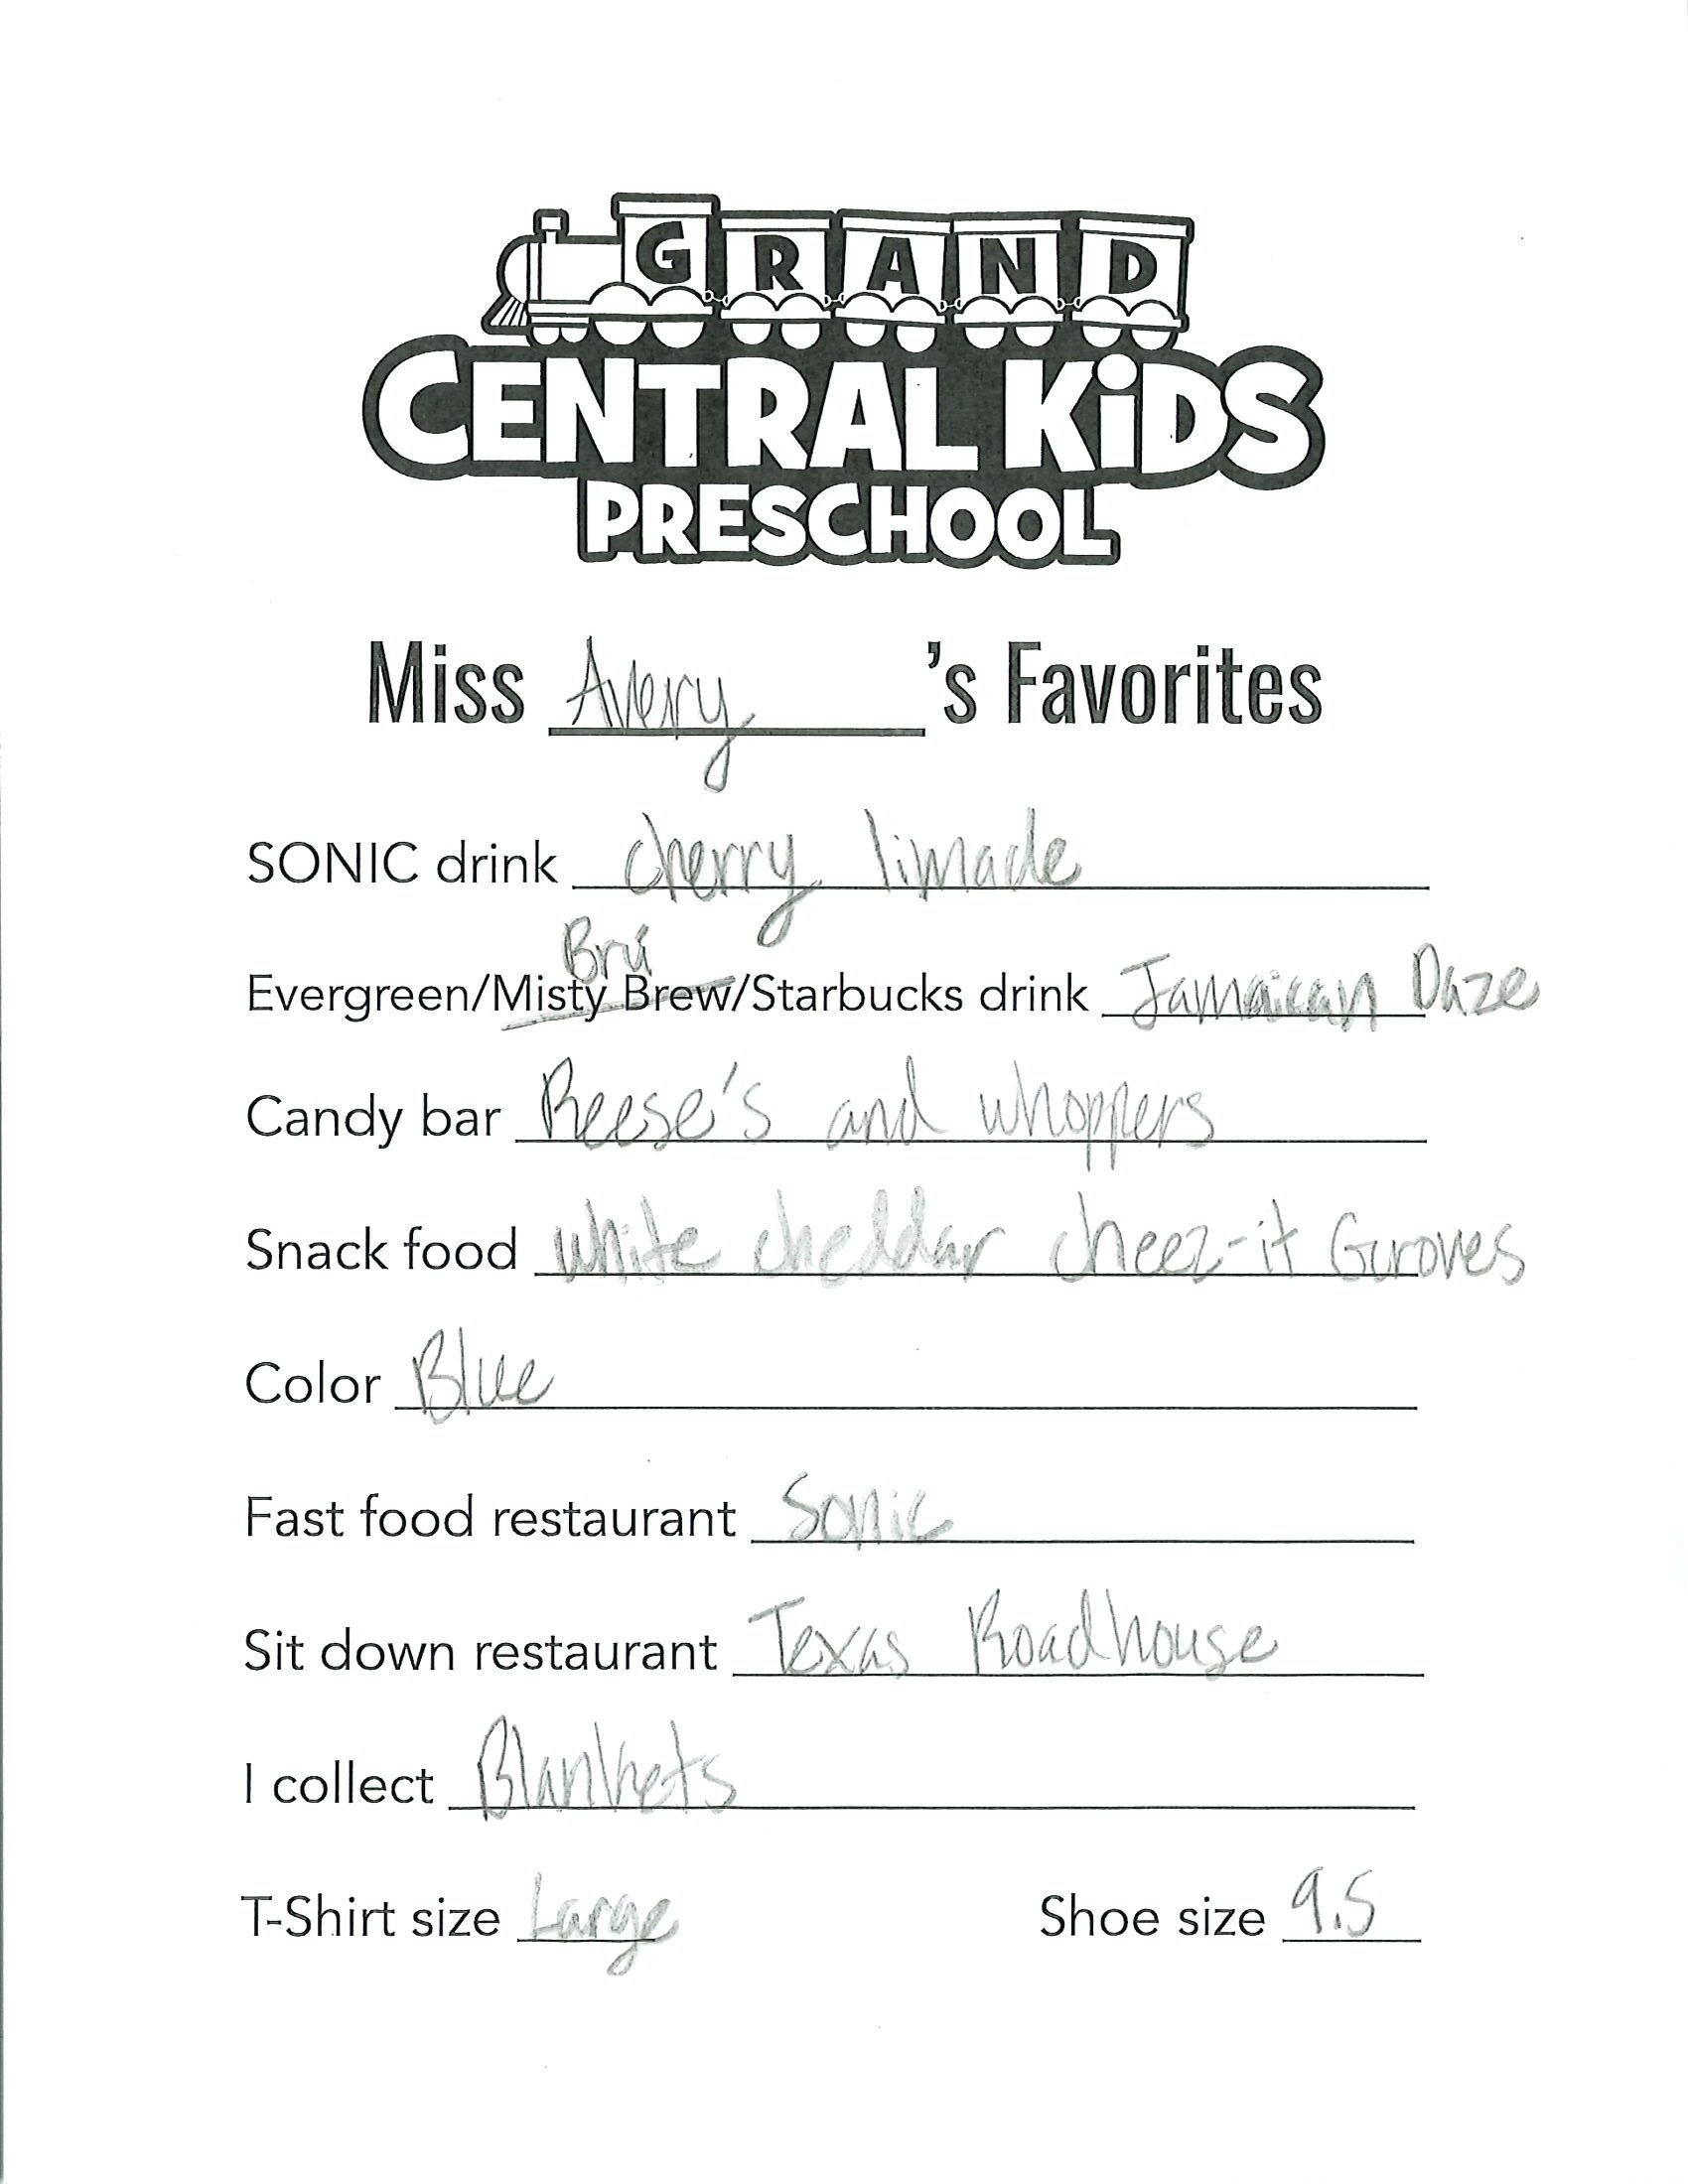 GRAND
CENTRAL KiDS
PRESCHOOL
Miss Avery 's Favorites
SONIC drink cherry limade
Brü
Evergreen/Misty Brew/Starbucks drink Jamaican Daze
Candy bar Reese's and whoppers
Snack food white cheddar cheez-it Groves
Color Blue
Fast food restaurant Sonic
Sit down restaurant Texas Roadhouse
I collect Blankets
T-Shirt size Large Shoe size 9.5